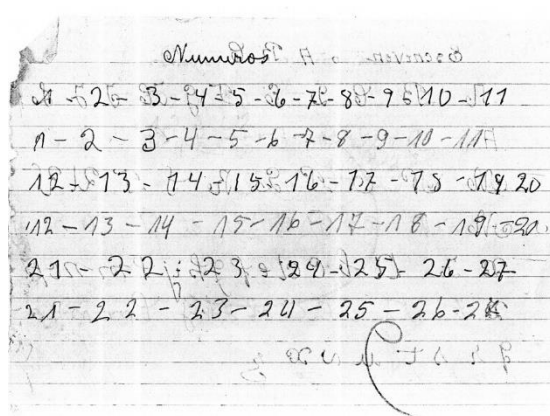 Numeros
1 - 2 - 3 - 4 - 5 - 6 - 7 - 8 - 9 - 10 - 11
1 - 2 - 3 - 4 - 5 - 6 - 7 - 8 - 9 - 10 - 11
12 - 13 - 14 - 15 - 16 - 17 - 18 - 19 - 20
12 - 13 - 14 - 15 - 16 - 17 - 18 - 19 - 20
21 - 22 - 23 - 24 - 25 - 26 - 27
21 - 22 - 23 - 24 - 25 - 26 - 2